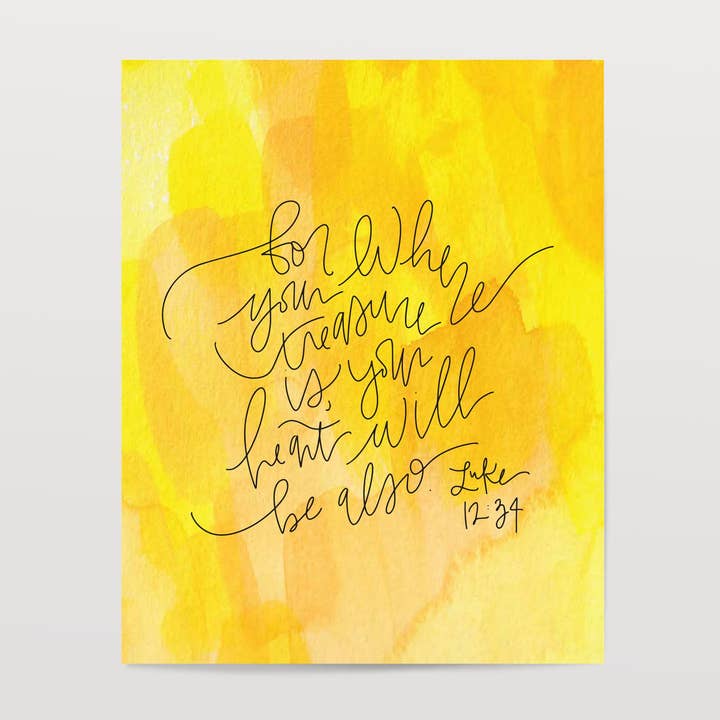 for where
your
treasure
is, your
heart will
be also. Luke
12:34